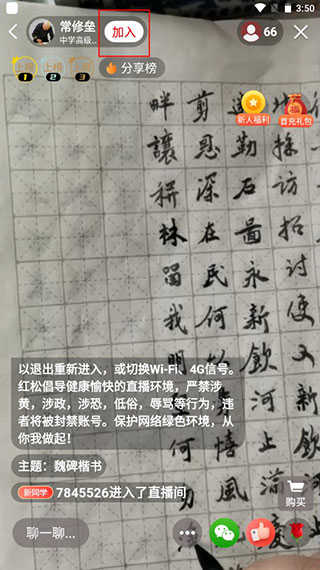 3:50
常修垒
中学高级...
加入
66
上榜
1
上榜
2
上榜
3
分享榜
新人福利
首充礼包
畔
讓
耕
林
留
我
明
剪
恩
深
在
民
何
勤
石
圖
永
新
飲
河
止
滿
度
採
訪
招
討
便
又
新
飲
以退出重新进入，或切换Wi-Fi、4G信号。
红松倡导健康愉快的直播环境，严禁涉
黄，涉政，涉恐，低俗，辱骂等行为，违
者将被封禁账号。保护网络绿色环境，从
你我做起！
主题：魏碑楷书
新同学 7845526进入了直播间
力
悟
風
购买
聊一聊...